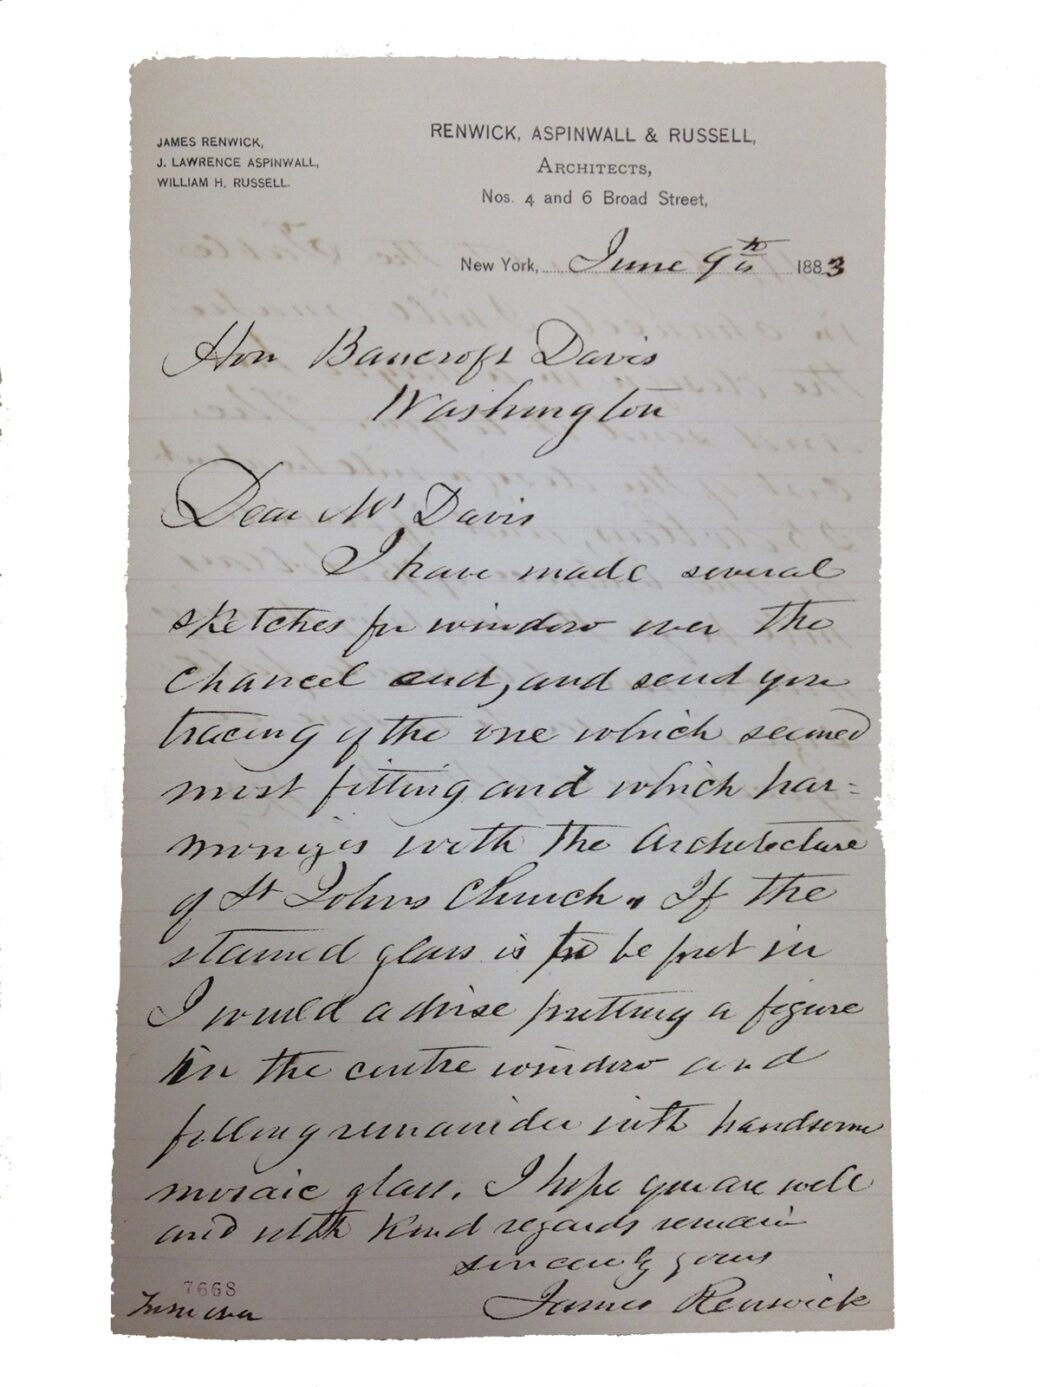 JAMES RENWICK,
J. LAWRENCE ASPINWALL,
WILLIAM H. RUSSELL.
RENWICK, ASPINWALL & RUSSELL,
ARCHITECTS,
Nos. 4 and 6 Broad Street,
New York, June 9th 1883
Hon Bancroft Davis
Washington
Dear Mr Davis
I have made several
sketches for window over the
chancel end, and send you
tracing of the one which seemed
most fitting and which har=
monizes with the Architecture
of St Johns Church. If the
stained glass is to be put in
I would advise putting a figure
in the centre window and
filling remainder with handsome
mosaic glass. I hope you are well
and with kind regards remain
sincerely yours
James Renwick
7668
Turn over